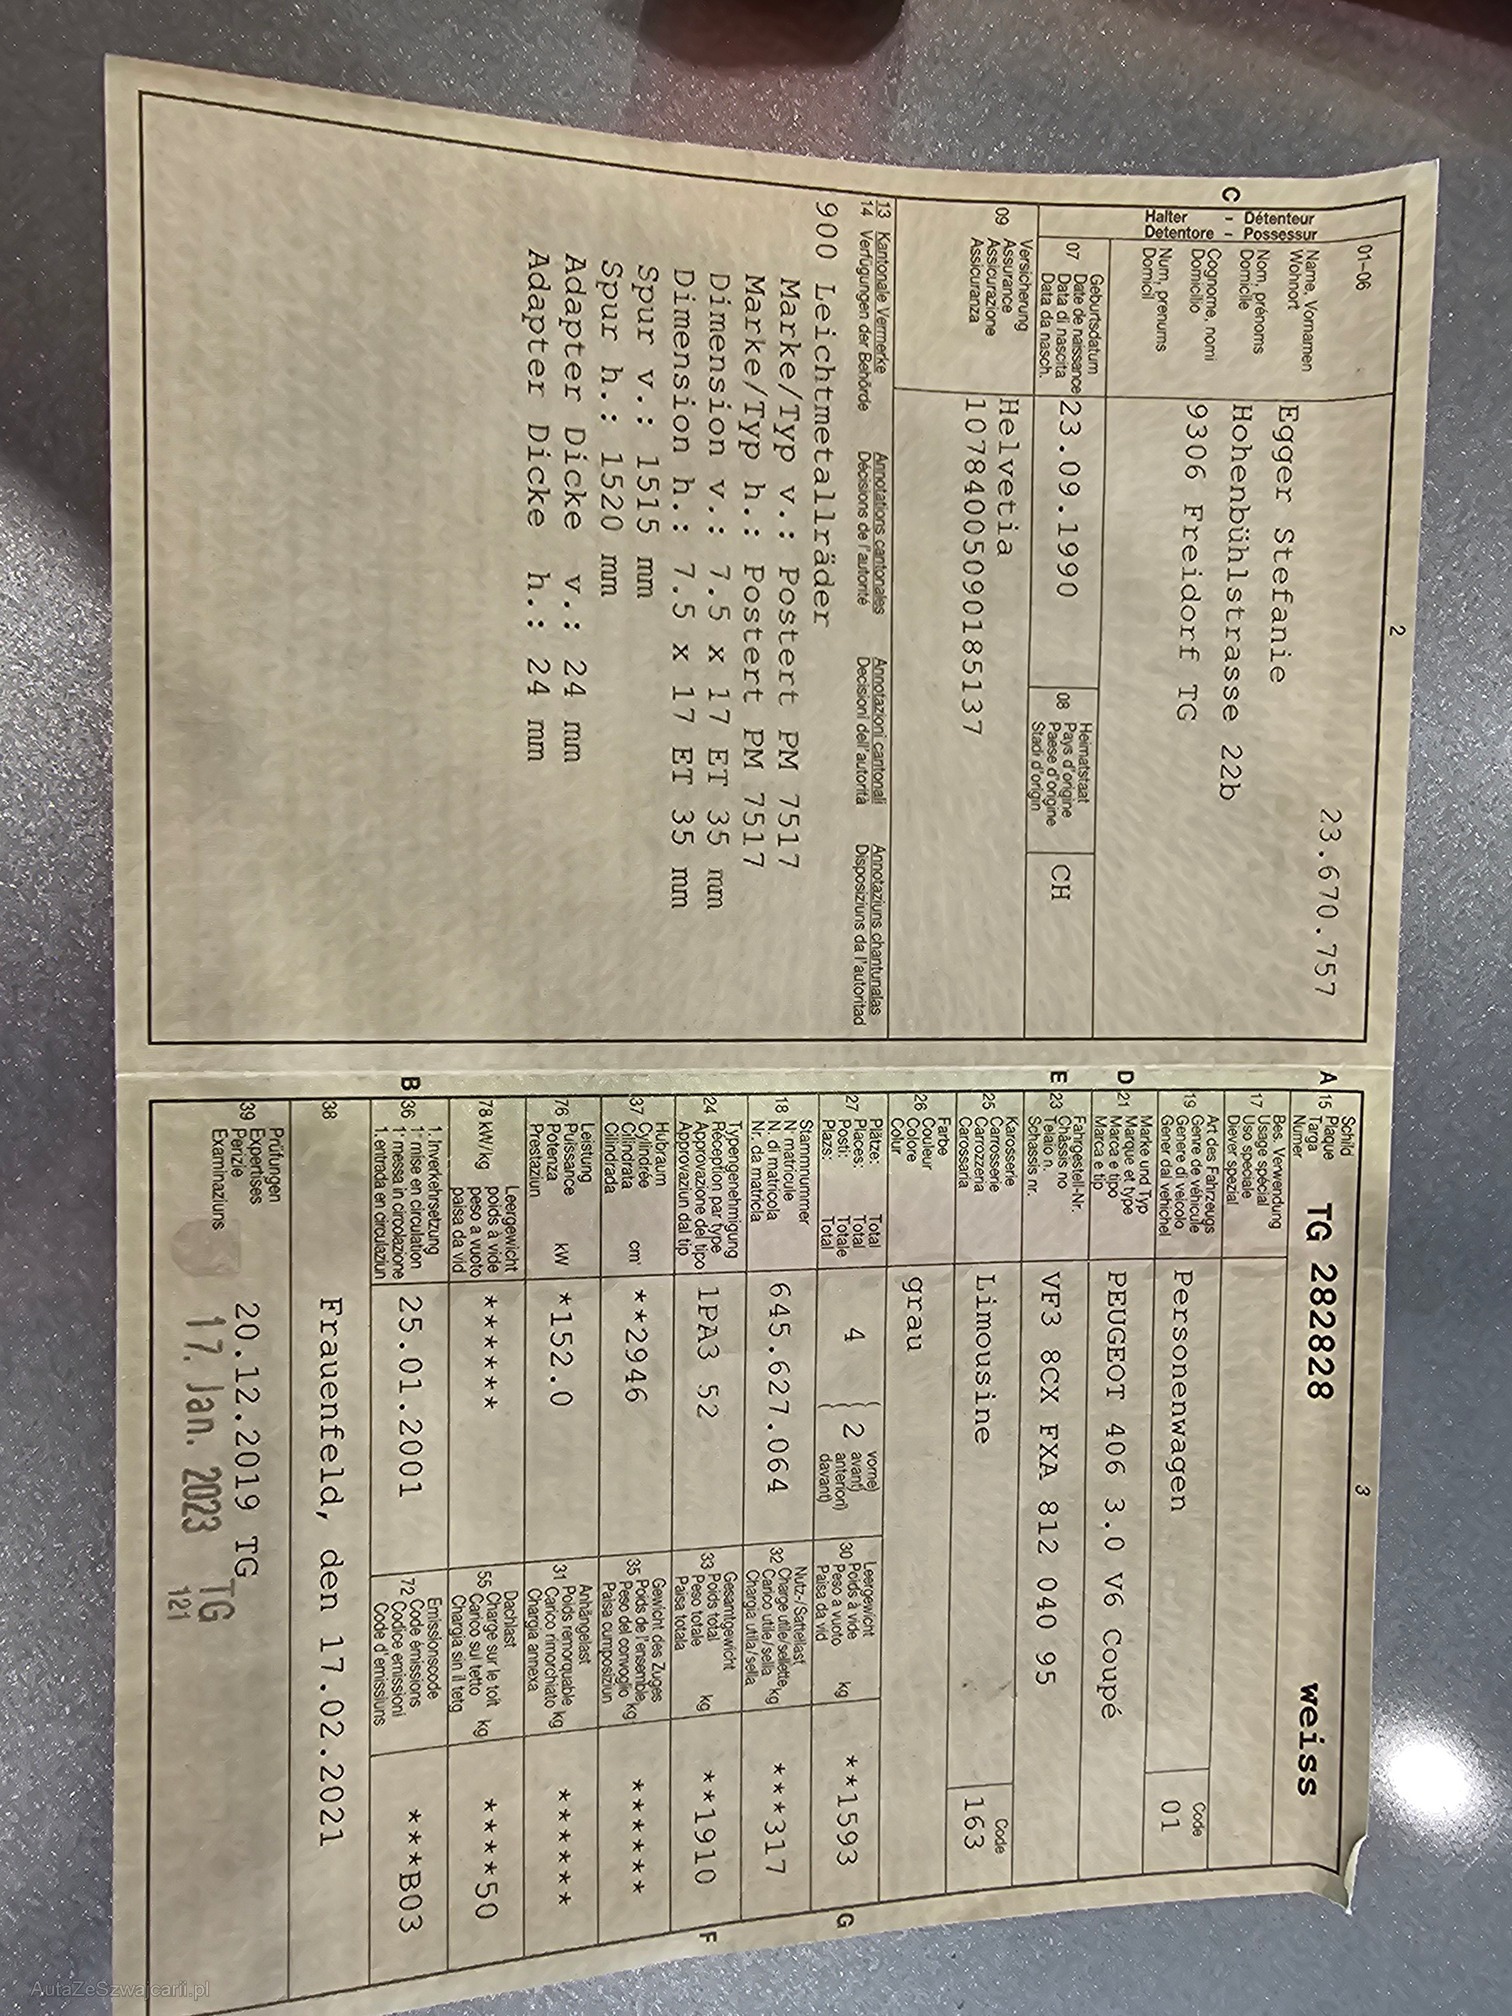 2
01-06
23.670.757
C
Halter - Détenteur
Detentore - Possessur
Name, Vornamen
Wohnort
Nom, prénoms
Domicile
Cognome, nomi
Domicilio
Num, prenums
Domicil
Egger Stefanie
Hohenbühlstrasse 22b
9306 Freidorf TG
07
Geburtsdatum
Date de naissance
Data di nascita
Data da nasch.
23.09.1990
08
Heimatstaat
Pays d'origine
Paese d'origine
Stadi d'origin
CH
09
Versicherung
Assurance
Assicurazione
Assicuranza
Helvetia
10784005090185137
13 Kantonale Vermerke Annotations cantonales Annotazioni cantonali Annotaziuns chantunalas
14 Verfügungen der Behörde Décisions de l'autorité Decisioni dell'autorità Disposiziuns da l'autoritad
900 Leichtmetallräder
Marke/Typ v.: Postert PM 7517
Marke/Typ h.: Postert PM 7517
Dimension v.: 7.5 x 17 ET 35 mm
Dimension h.: 7.5 x 17 ET 35 mm
Spur v.: 1515 mm
Spur h.: 1520 mm
Adapter Dicke v.: 24 mm
Adapter Dicke h.: 24 mm
3
A 15
Schild
Plaque
Targa
Numer
TG 282828 weiss
17
Bes. Verwendung
Usage spécial
Uso speciale
Diever spezial
19
Art des Fahrzeugs
Genre de véhicule
Genere di veicolo
Gener dal vehichel
Personenwagen
Code
01
D 21
Marke und Typ
Marque et type
Marca e tipo
Marca e tip
PEUGEOT 406 3.0 V6 Coupé
E 23
Fahrgestell-Nr.
Châssis no
Telaio n.
Schassis nr.
VF3 8CX FXA 812 040 95
25
Karosserie
Carrosserie
Carrozzeria
Carrossaria
Limousine
Code
163
26
Farbe
Couleur
Colore
Colur
grau
27
Plätze: Total
Places: Total
Posti: Totale
Plazs: Total
4
2
vorne)
avant)
anteriori)
davant)
30
Leergewicht
Poids à vide
Peso a vuoto
Paisa da vid
kg
**1593
G
18
Stammnummer
N° matricule
N. di matricola
Nr. da matricla
645.627.064
32
Nutz-/Sattellast
Charge utile/sellette
Carico utile/sella
Chargia utila/sella
kg
***317
24
Typengenehmigung
Réception par type
Approvazione del tipo
Approvaziun dal tip
1PA3 52
33
Gesamtgewicht
Poids total
Peso totale
Paisa totala
kg
**1910
F
37
Hubraum
Cylindrée
Cilindrata
Cilindrada
cm³
**2946
35
Gewicht des Zuges
Poids de l'ensemble
Peso del convoglio
Paisa cumposiziun
kg
******
76
Leistung
Puissance
Potenza
Prestaziun
kW
*152.0
31
Anhängelast
Poids remorquable
Carico rimorchiato
Chargia annexa
kg
******
78 kW/kg
Leergewicht
poids à vide
peso a vuoto
paisa da vid
******
55
Dachlast
Charge sur le toit
Carico sul tetto
Chargia sin il tetg
kg
****50
B 36
1. Inverkehrsetzung
1re mise en circulation
1a messa in circolazione
1. entrada en circulaziun
25.01.2001
72
Emissionscode
Code émissions
Codice emissioni
Code d'emissiuns
***B03
38
Frauenfeld, den 17.02.2021
39
Prüfungen
Expertises
Perizie
Examinaziuns
20.12.2019 TG
17. Jan. 2023 TG
121
AutaZeSzwajcarii.pl